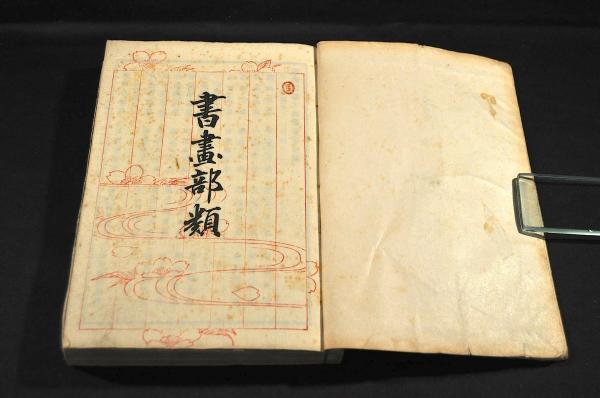 書畫部類